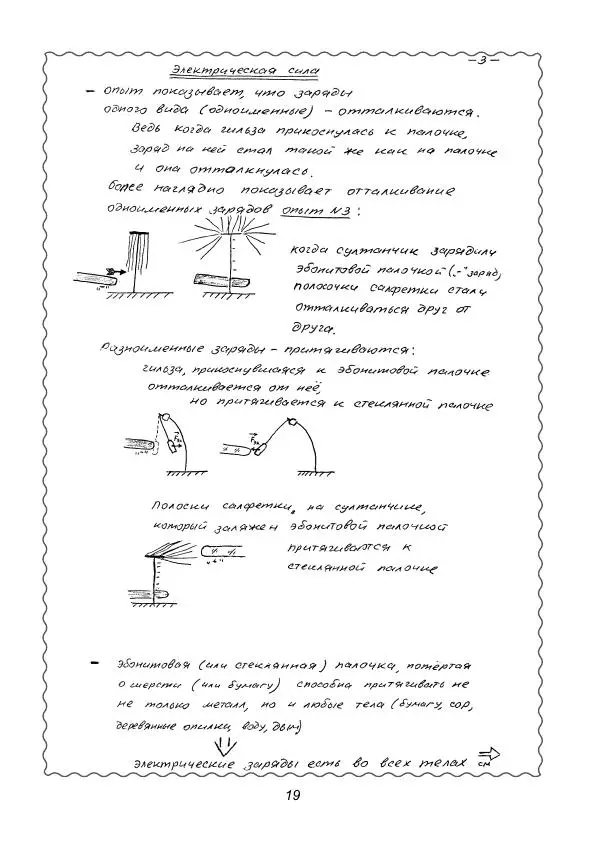 – 3 –
Электрическая сила
– опыт показывает, что заряды
одного вида (одноименные) – отталкиваются.
Ведь когда гильза прикоснулась к палочке,
заряд на ней стал такой же как на палочке
и она оттолкнулась.
более наглядно показывает отталкивание
одноименных зарядов опыт №3:
когда султанчик зарядили
эбонитовой палочкой („-" заряд)
полосочки салфетки стали
отталкиваться друг от
друга.
Разноименные заряды – притягиваются:
гильза, прикоснувшаяся к эбонитовой палочке
отталкивается от неё,
но притягивается к стеклянной палочке
Полоски салфетки, на султанчике,
который заляжен эбонитовой палочкой
притягиваются к
стеклянной палочке
„+"
– Эбонитовая (или стеклянная) палочка, потёртая
о шерсти (или бумагу) способна притягивать не
не только металл, но и любые тела (бумагу, сор,
деревянные опилки, воду, дым)
Электрические заряды есть во всех телах
см
19